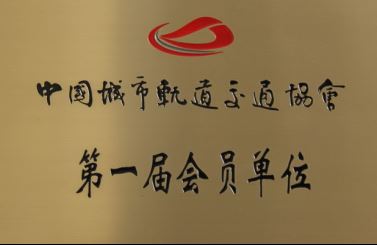 中國城市軌道交通協會
第一届会员单位